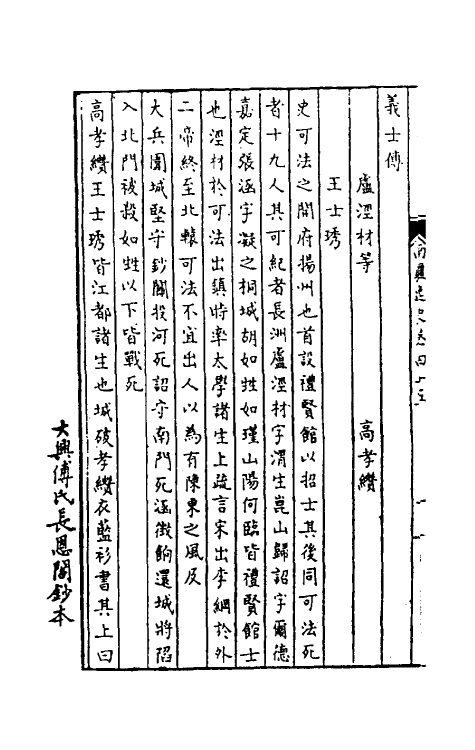 義士傳
盧涇材等　高孝纘
王士琇
史可法之開府揚州也首設禮賢館以招士其後同可法死
者十九人其可紀者長洲盧涇材字渭生崑山歸詔字爾德
嘉定張涵字凝之桐城胡如甡如瑾山陽何臨皆禮賢館士
也涇材於可法出鎮時率太學諸生上疏言宋出李綱於外
二帝終至北轅可法不宜出人以為有陳東之風及
大兵圍城堅守鈔關投河死詔守南門死涵徵餉還城將陷
入北門被殺如甡以下皆戰死
高孝纘王士琇皆江都諸生也城破孝纘衣藍衫書其上曰
大興傅氏長恩閣鈔本
史卷四十五